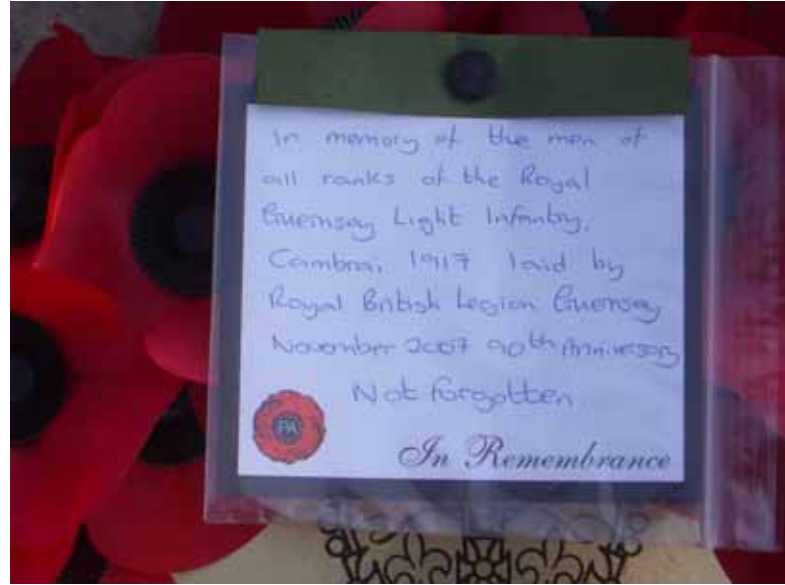 In memory of the men of
all ranks of the Royal
Guernsey Light Infantry,
Cambrai 1917 laid by
Royal British Legion Guernsey
November 2007 90th Anniversary
Not forgotten
PA
In Remembrance